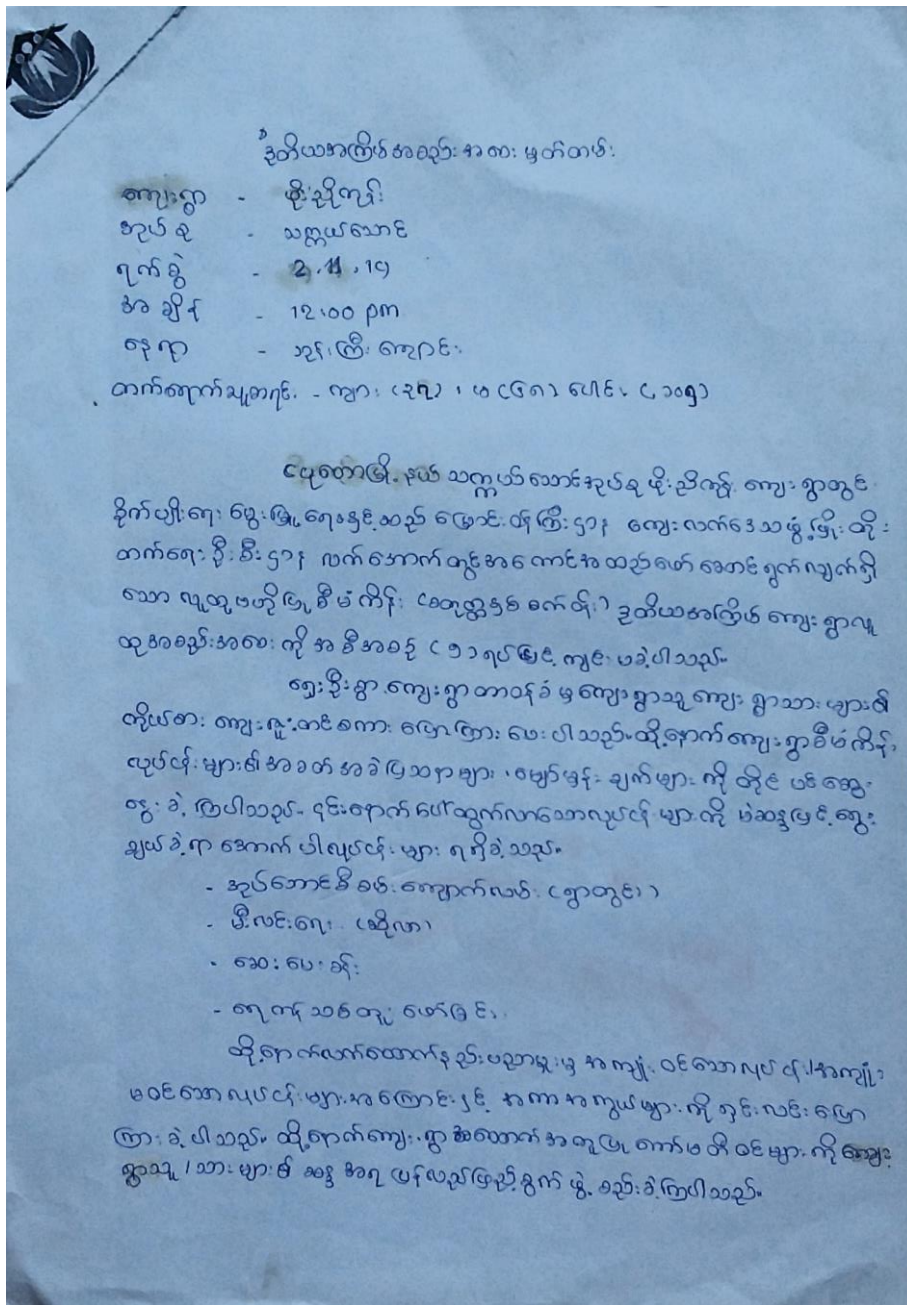 ဒုတိယအကြိမ်အစည်းအဝေး မှတ်တမ်း
ကျေးရွာ - ဖိုးညိုကုန်း
အုပ်စု - သက္ကယ်သောင်
ရက်စွဲ - 2.11.19
အချိန် - 12:00 pm
နေရာ - ဘုန်းကြီးကျောင်း
တက်ရောက်သူစာရင်း - ကျား (၃၇)၊ မ (၆၈) ပေါင်း (၁၀၅)
ငပုတောမြို့နယ် သက္ကယ်သောင်အုပ်စု ဖိုးညိုကုန်း ကျေးရွာတွင်
စိုက်ပျိုးရေး မွေးမြူရေးနှင့်ဆည်မြောင်းဝန်ကြီးဌာန ကျေးလက်ဒေသဖွံ့ဖြိုးတိုး
တက်ရေးဦးစီးဌာန လက်အောက်တွင်အကောင်အထည်ဖော်ဆောင်ရွက်လျက်ရှိ
သော လူထုဗဟိုပြုစီမံကိန်း (စတုတ္ထနှစ်စက်ဝန်း) ဒုတိယအကြိမ် ကျေးရွာလူ
ထုအစည်းအဝေးကို အစီအစဉ် (၅) ရပ်ဖြင့် ကျင်းပခဲ့ပါသည်။
ရှေးဦးစွာ ကျေးရွာတာဝန်ခံမှ ကျေးရွာသူကျေးရွာသားများ၏
ကိုယ်စား ကျေးဇူးတင်စကား ပြောကြားပေးပါသည်။ ထို့နောက် ကျေးရွာစီမံကိန်း
လုပ်ငန်းများ၏ အခက်အခဲပြဿနာများ၊ မျှော်မှန်းချက်များကို တိုင်ပင်ဆွေး
နွေးခဲ့ကြပါသည်။ ၎င်းနောက် ပေါ်ထွက်လာသောလုပ်ငန်းများကို မဲဆန္ဒဖြင့်ရွေး
ချယ်ခဲ့ရာ အောက်ပါလုပ်ငန်းများ ရရှိခဲ့သည်။
- အုပ်ဘောင်စီခင်းကျောက်လမ်း (ရွာတွင်း)
- မီးလင်းရေး (ဆိုလာ)
- ဆေးပေးခန်း
- ရေကန်သစ်တူးဖော်ခြင်း
ထို့နောက်လက်ထောက်နည်းပညာမှူးမှ အကျုံးဝင်သောလုပ်ငန်း/အကျုံး
မဝင်သောလုပ်ငန်းများအကြောင်းနှင့် အကာအကွယ်များကို ရှင်းလင်းပြော
ကြားခဲ့ပါသည်။ ထို့နောက်ကျေးရွာအထောက်အကူပြုကော်မတီဝင်များကို ကျေး
ရွာသူ/သားများ၏ ဆန္ဒအရ ပြန်လည်ဖြည့်စွက် ဖွဲ့စည်းခဲ့ကြပါသည်။